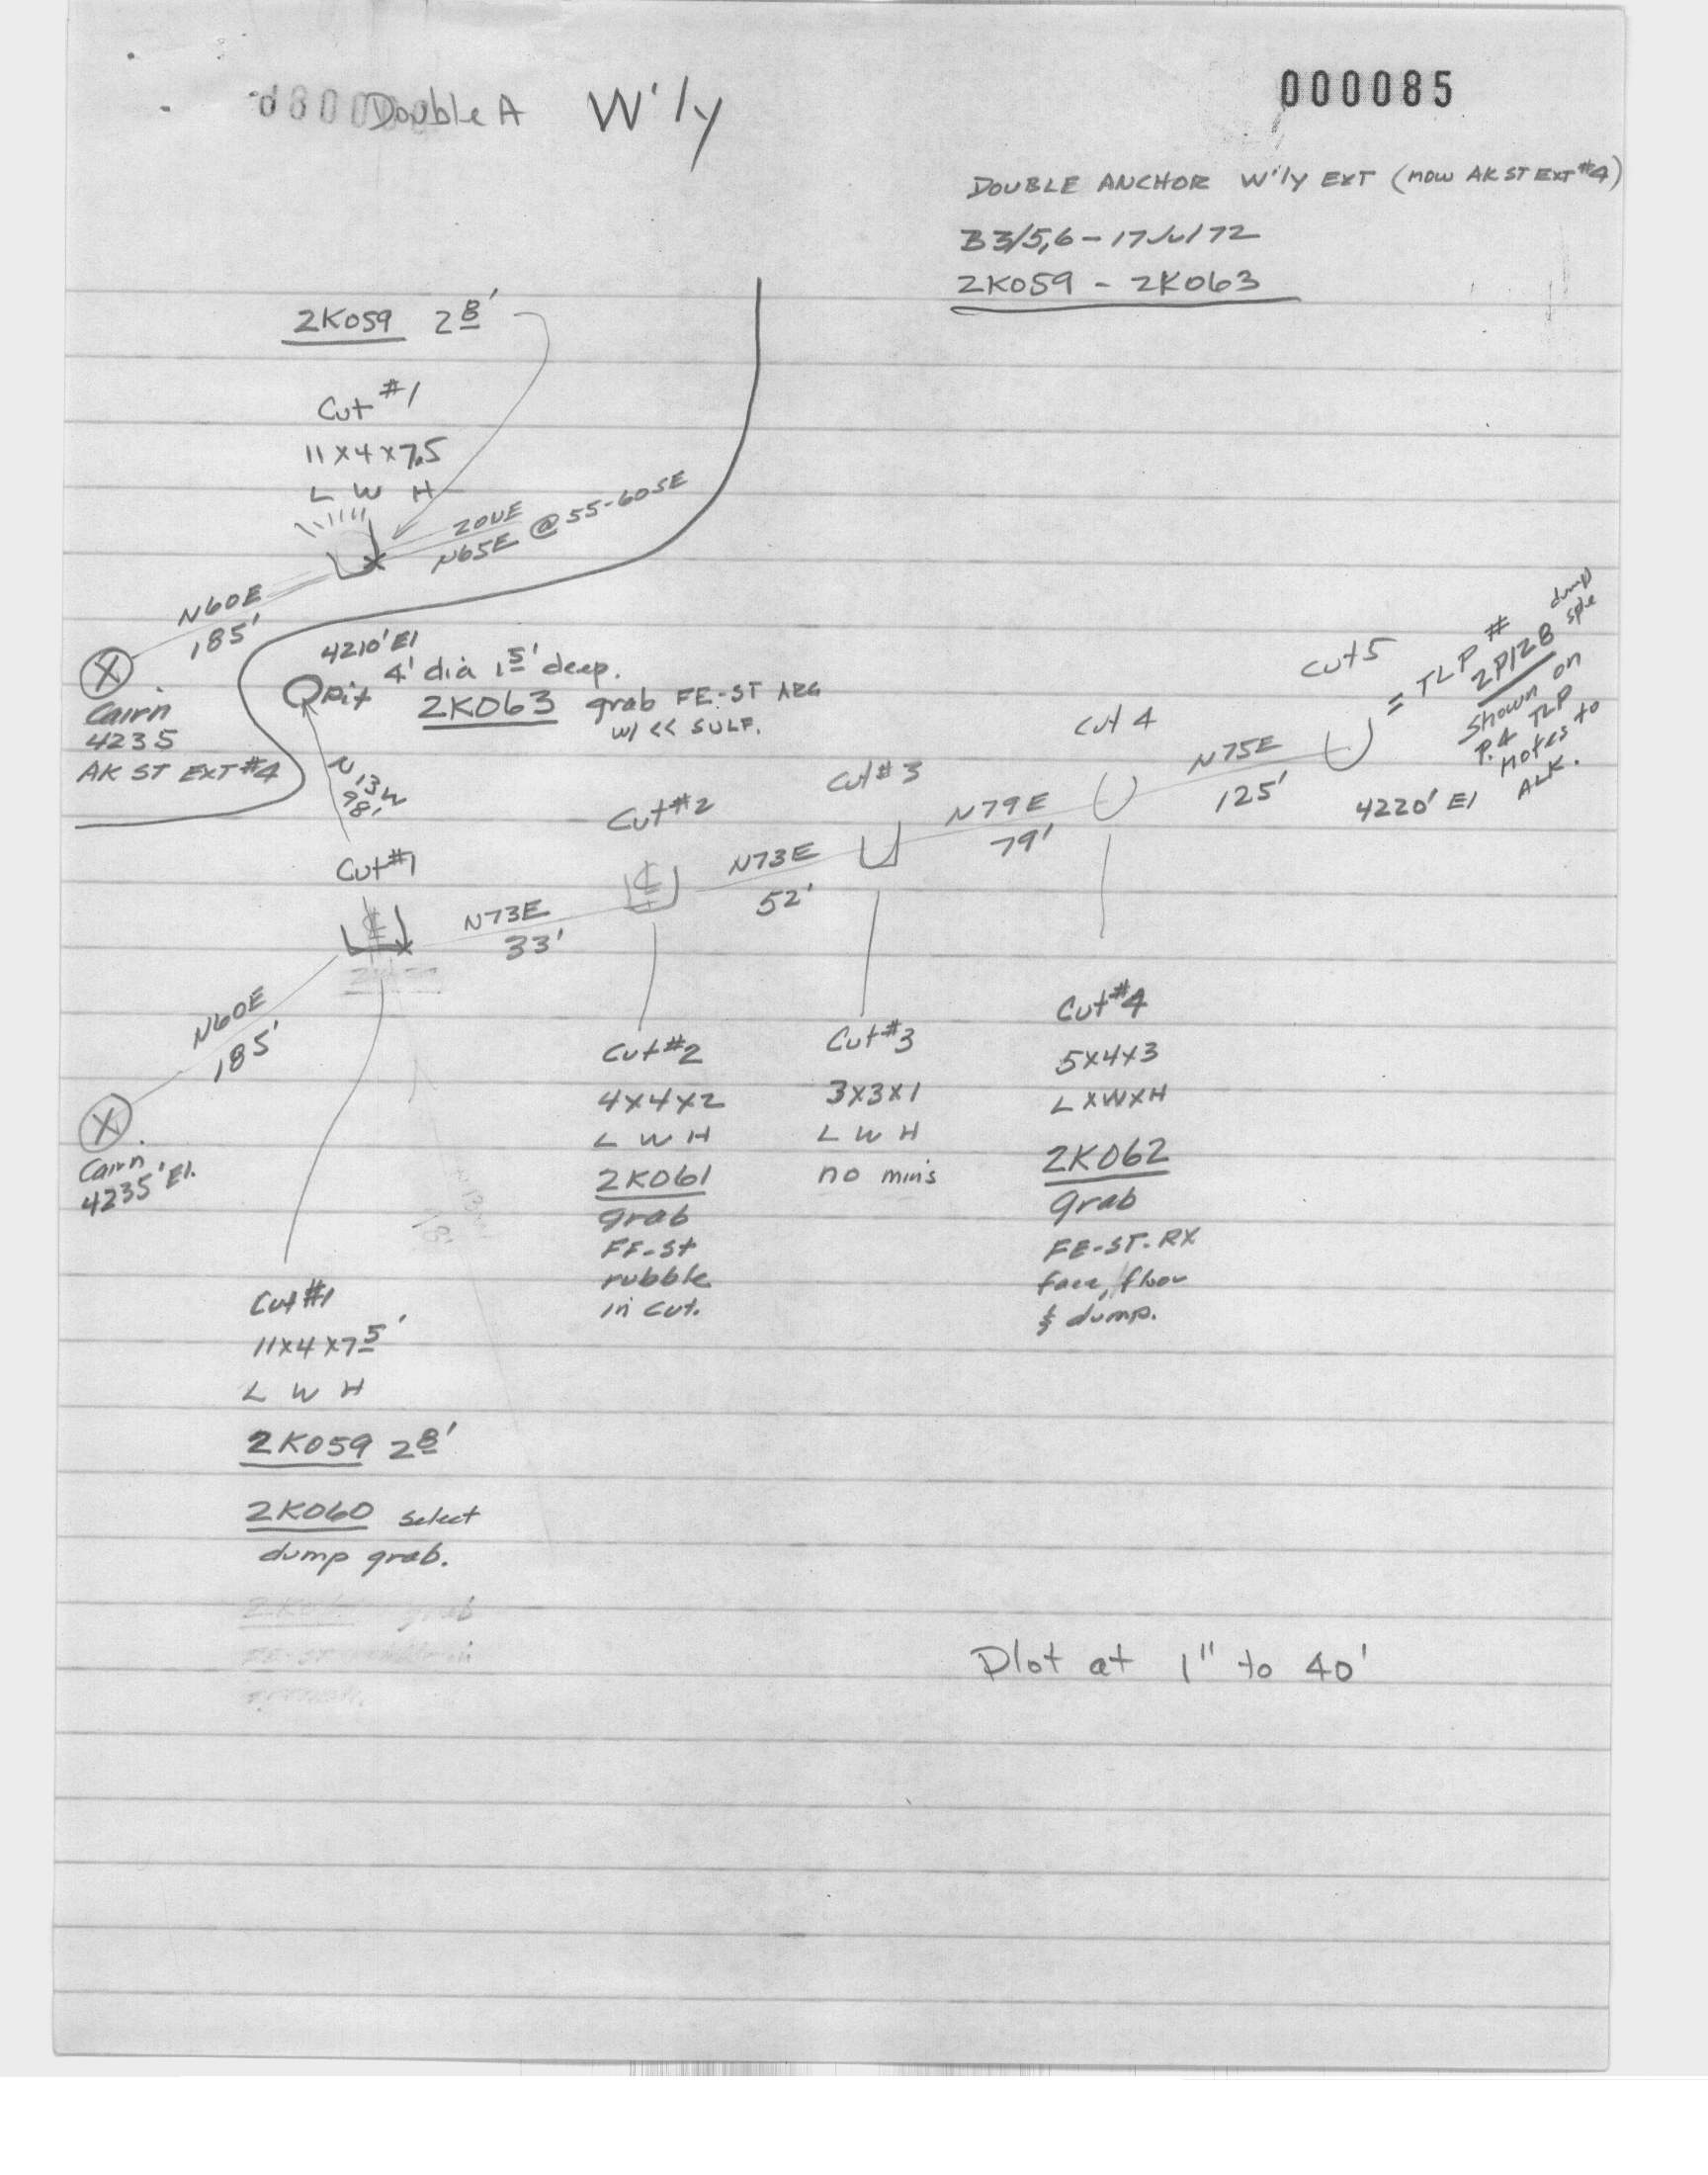 Double A W'ly
000085
DOUBLE ANCHOR W'ly EXT (now AK ST EXT #4)
B3/5,6 - 17 Jul 72
2K059 - 2K063
2K059 2 8'
Cut #1
11 x 4 x 7.5
L W H
ZONE
N65E @ 55-60SE
N60E
185'
Cairn
4235
AK ST EXT #4
4210' El
Pit 4' dia 1 5' deep.
2K063 grab FE-ST ARG
w/ << SULF.
N13W
98'
Cut #1
N73E
33'
Cut #2
N73E
52'
Cut #3
N79E
79'
Cut 4
N75E
125'
Cut 5
= TLP #
2P128 dump sple
Shown on
P.4 TLP
notes to
ALK.
4220' El
N60E
185'
Cairn
4235' El.
Cut #1
11 x 4 x 7 5'
L W H
2K059 2 8'
2K060 select
dump grab.
Cut #2
4x4x2
L W H
2K061
grab
FE-St
rubble
in cut.
Cut #3
3x3x1
L W H
no min's
Cut #4
5x4x3
L x W x H
2K062
grab
FE-ST. RX
face, floor
& dump.
Plot at 1" to 40'